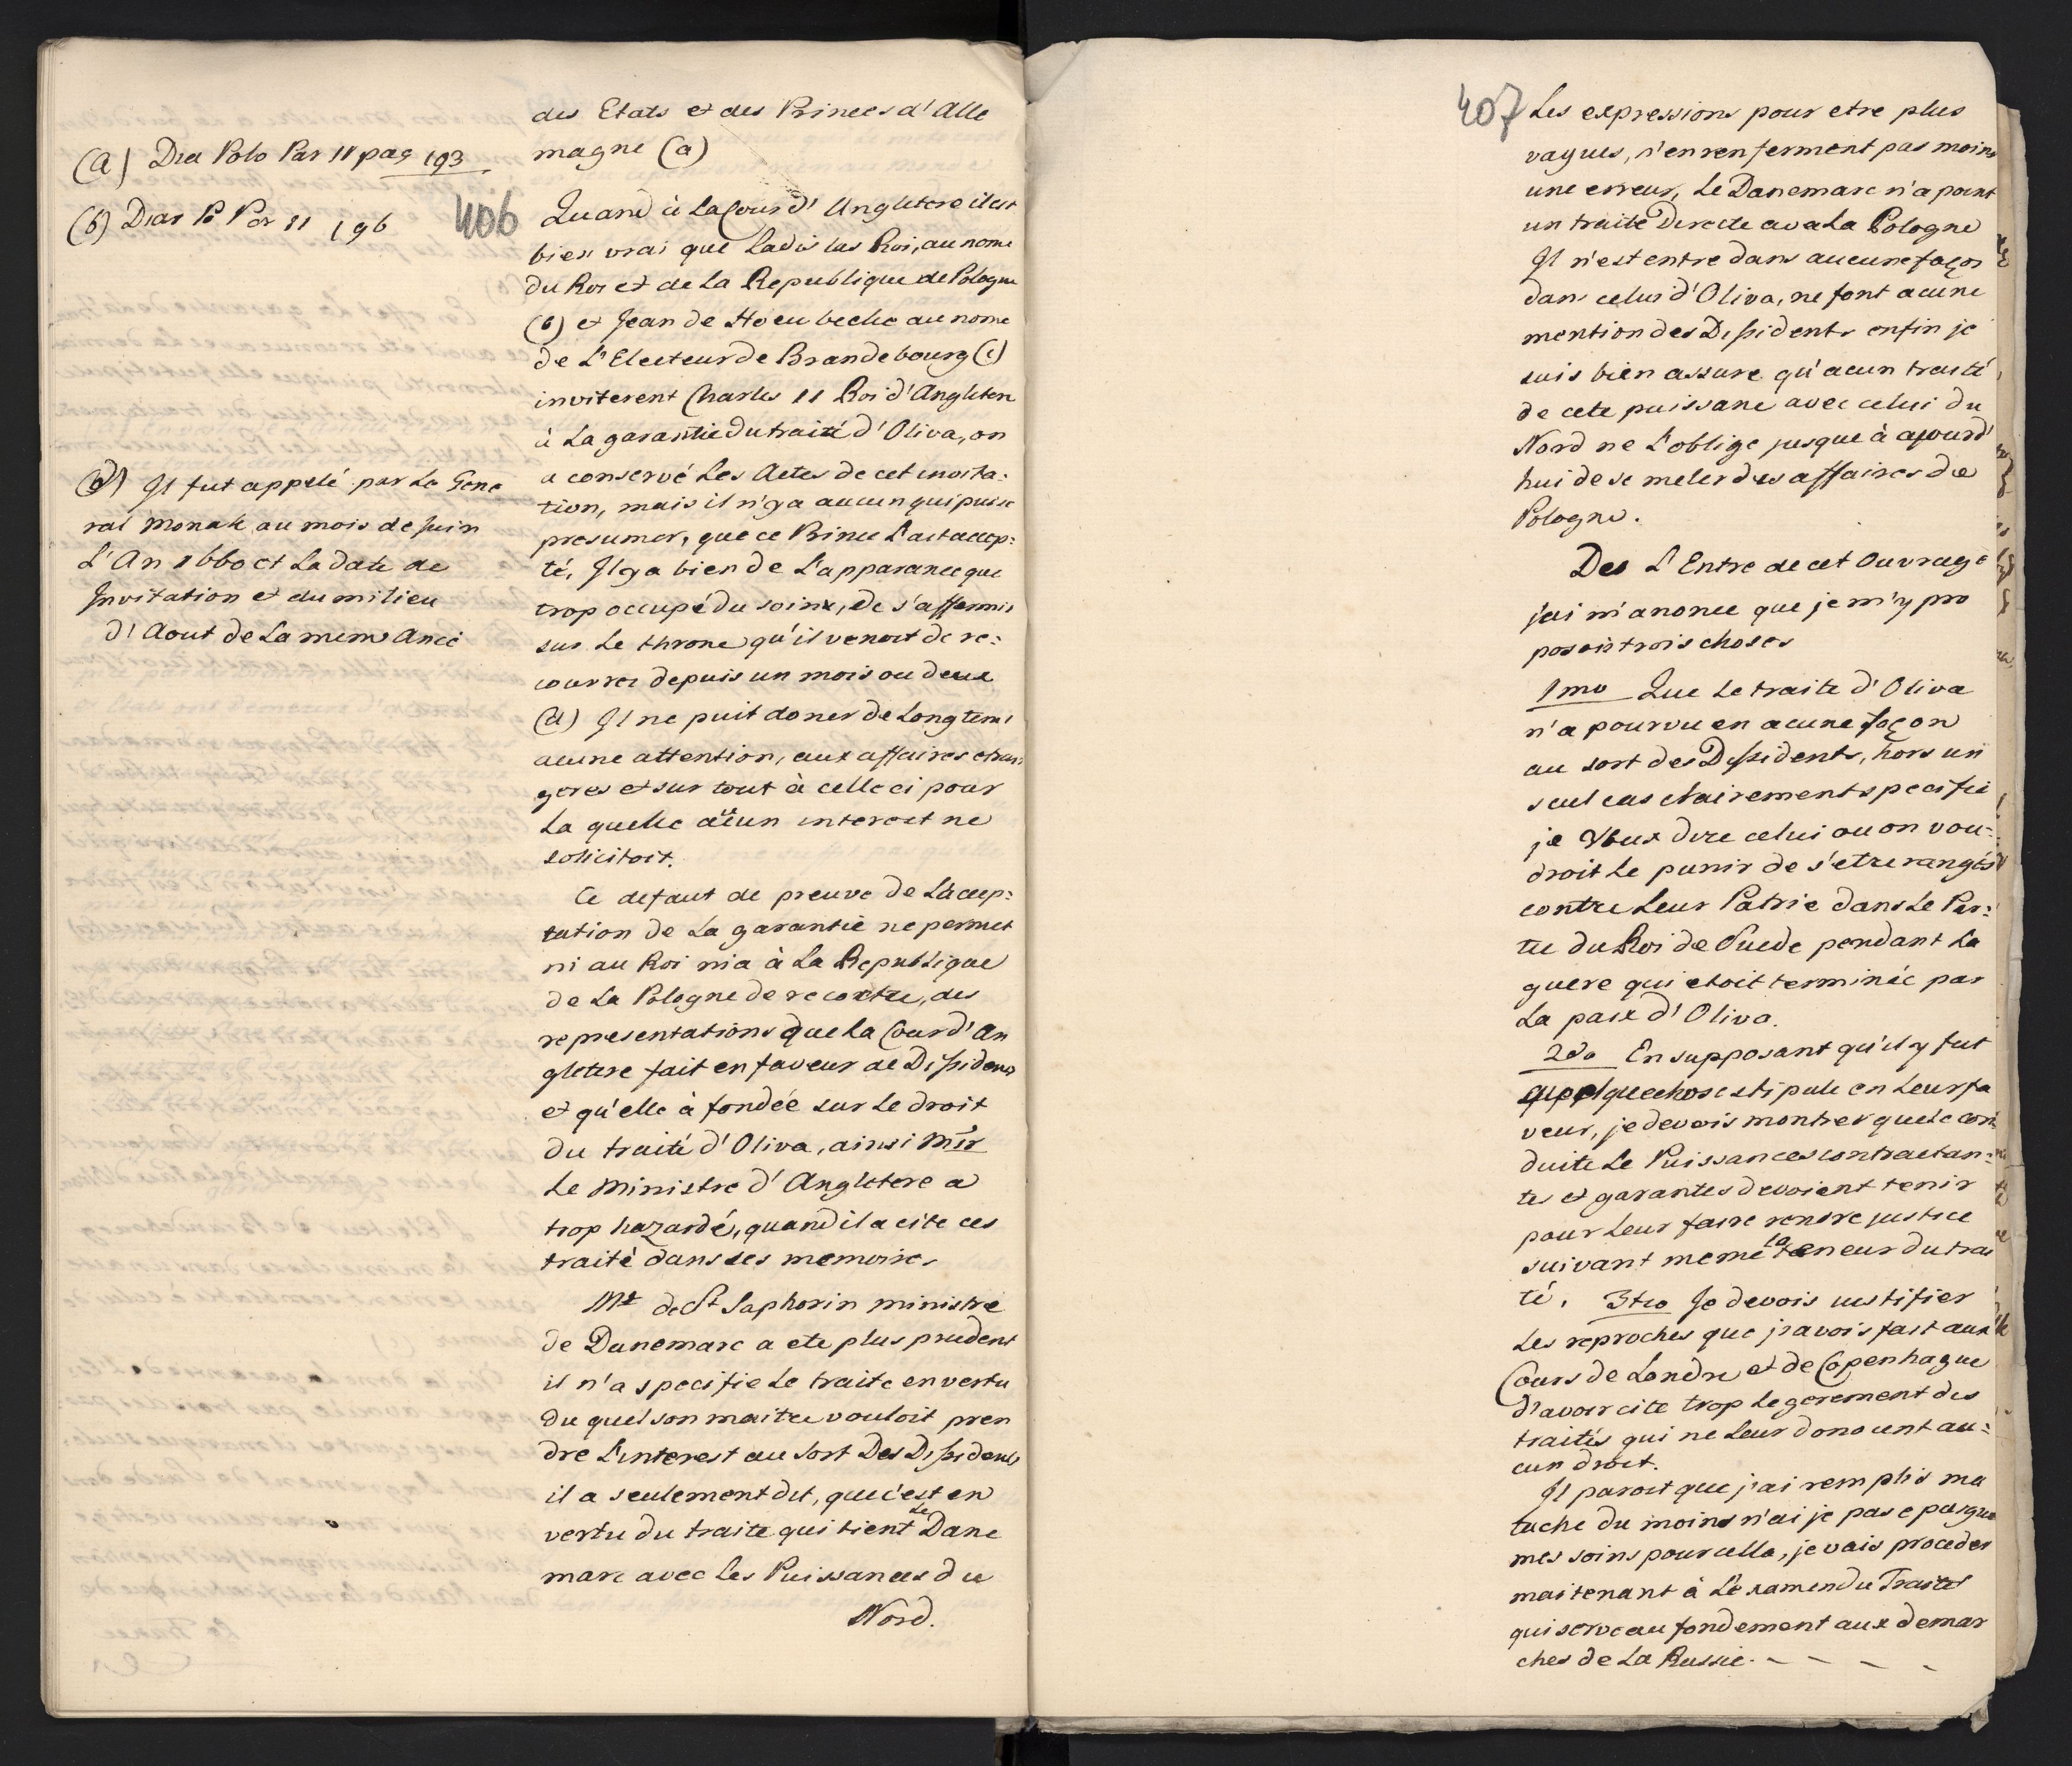 des Etats et des Princes d'Alle
magne (a)
(a) Dia Polo Par II pag 193
(b) Diar Po Par II 196
406
Quand à La Cour d'Angletere il est
bien vrai que Ladislas Roi, au nome
du Roi et de La Republique de Pologne
(b) et Jean de Hoeubeche au nome
de L'Electeur de Brandebourg (c)
inviterent Charles II Roi d'Angletere
à La garantie du traité d'Oliva, on
a conservé Les Actes de cet invita:
tion, mais il n'y a aucun qui puisse
presumer, que ce Prince L'ait accep:
té, Il y a bien de L'apparance que
trop occupé du soins, de s'affermir
sur Le throne qu'il venoit de re:
couvrer depuis un mois ou deux
(d) Il ne puit doner de Longtems
acune attention, aux affaires etran
geres et sur tout à celle ci pour
La quelle aucun interoet ne
solicitoit.
(d) Il fut appelé par Le Gene
ral Monak au mois de Juin
L'An 1660 et La date de
Invitation et du milieu
d'Aout de La meme Aneé
Ce defaut de preuve de L'accep:
tation de La garantie ne permet
ni au Roi nia à La Republique
de La Pologne de recoxtre, des
representations que La Cour d'An
gletere fait en faveur de Dissidens
et qu'elle à fondée sur Le droit
du traité d'Oliva, ainsi Mr
Le Ministre d'Angletere a
trop hazardé, quand il a cite ces
traité dans ses memoires
Mr de St Saphorin ministre
de Danemarc a ete plus prudent
il n'a specifie Le traite en vertu
du quel son maitre vouloit pren
dre L'interest au sort Des Dissidens
il a seulement dit, que c'est en
vertu du traite qui tient Le Dane
marc avec Les Puissances du
Nord.
407
Les expressions pour etre plus
vagues, n'en renferment pas moins
une erreur, Le Danemarc n'a point
un traité Directe avec La Pologne
Il n'est entre dans aucune façon
dans celui d'Oliva, ne font acune
mention des Dissidents enfin je
suis bien assure qu'acun traité
de cete puissane avec celui du
Nord ne L'oblige jusque à ajourd'
hui de se meler des affaires de
Pologne.
Des L'Entre de cet Ouvrage
j'ai m'anonce que je m'y pro
posois trois choses
1mo Que Le traite d'Oliva
n'a pourvu en acune façon
au sort des Dissidents, hors un
seul cas clairement specifié
je Veux dire celui ou on vou:
droit Le punir de s'etre rangés
contre Leur Patrie dans Le Par:
tie du Roi de Suede pendant La
guere qui etoit terminéc par
La paix d'Oliva.
2do En supposant qu'il y fut
quelque chose stipule en Leur fa
veur, je devois montrer que Le con
duite Le Puissances contractan:
tes et garantes devoient tenir
pour Leur faire rendre justice
suivant meme la teneur du trai
té. 3tio Je devois iustifier
Les reproches que j'avois fait aux
Cours de Londre et de Copenhague
d'avoir cite trop Legerement des
traités qui ne Leur donoient au:
cun droit.
Il paroit que j'ai remplis ma
tache du moins n'ai je pas epargne
mes soins pour cella, je vais proceder
maitenant à L'examen du Traité
qui serve au fondement aux demar
ches de La Russie. - - - -